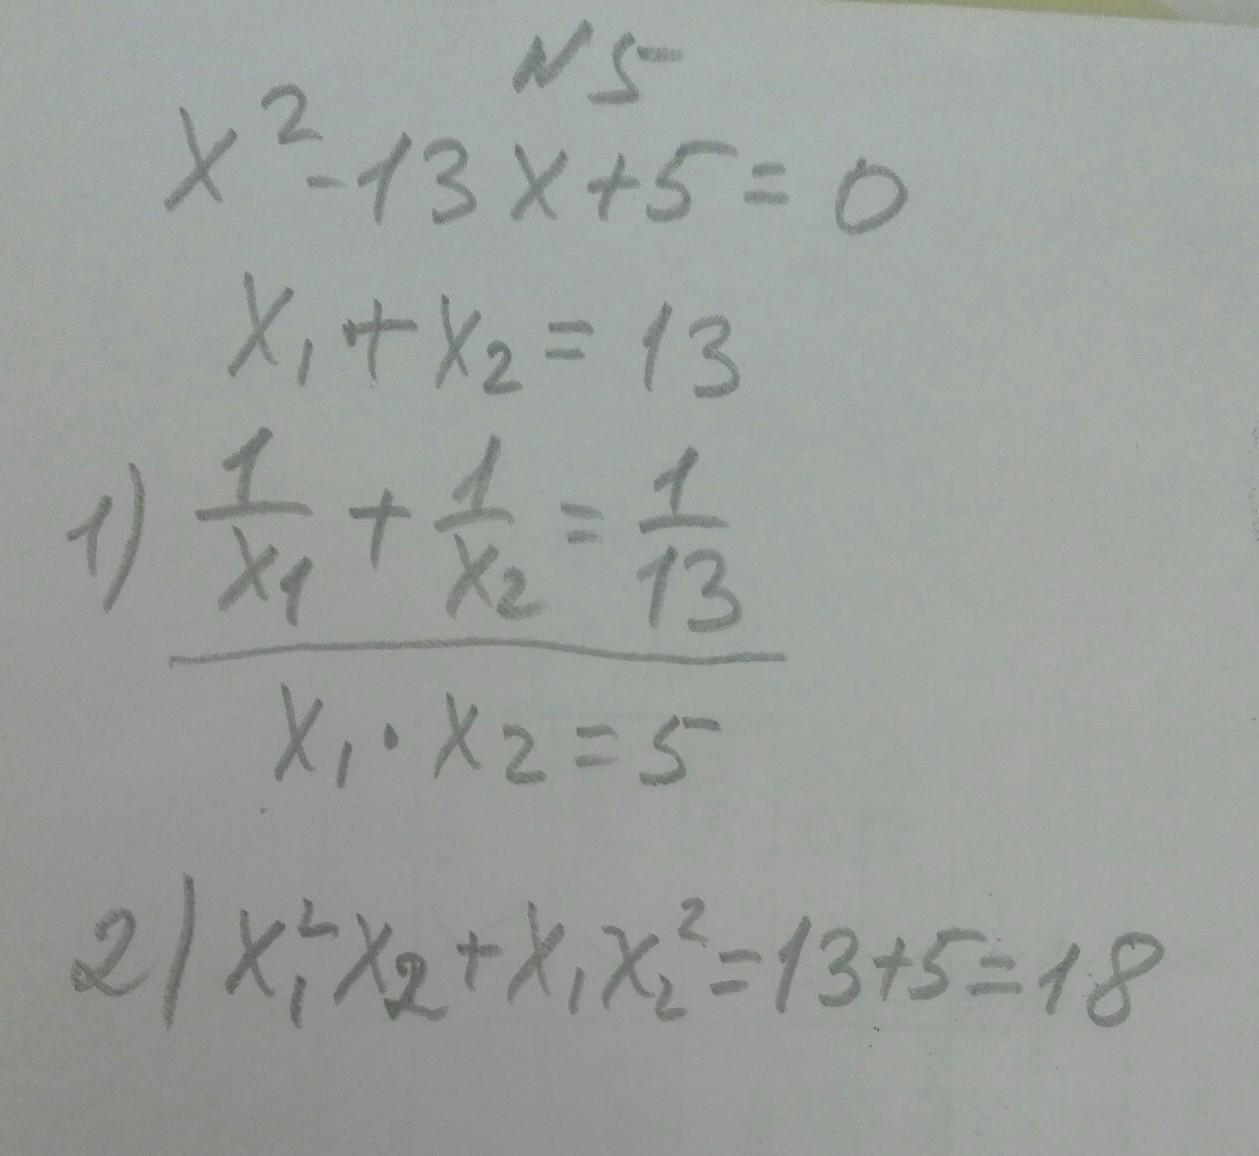 N 5
x² - 13x + 5 = 0
x₁ + x₂ = 13
1) 1/x₁ + 1/x₂ = 1/13
x₁ · x₂ = 5
2) x₁²x₂ + x₁x₂² = 13 + 5 = 18